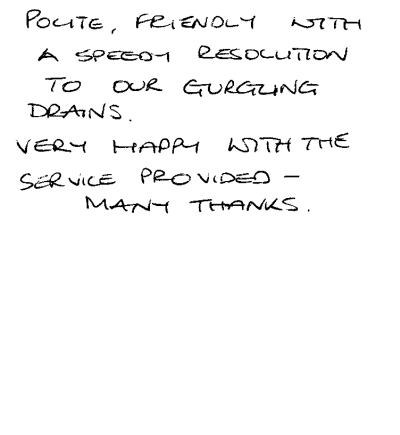 POLITE, FRIENDLY WITH
A SPEEDY RESOLUTION
TO OUR GURGLING
DRAINS.
VERY HAPPY WITH THE
SERVICE PROVIDED -
MANY THANKS.